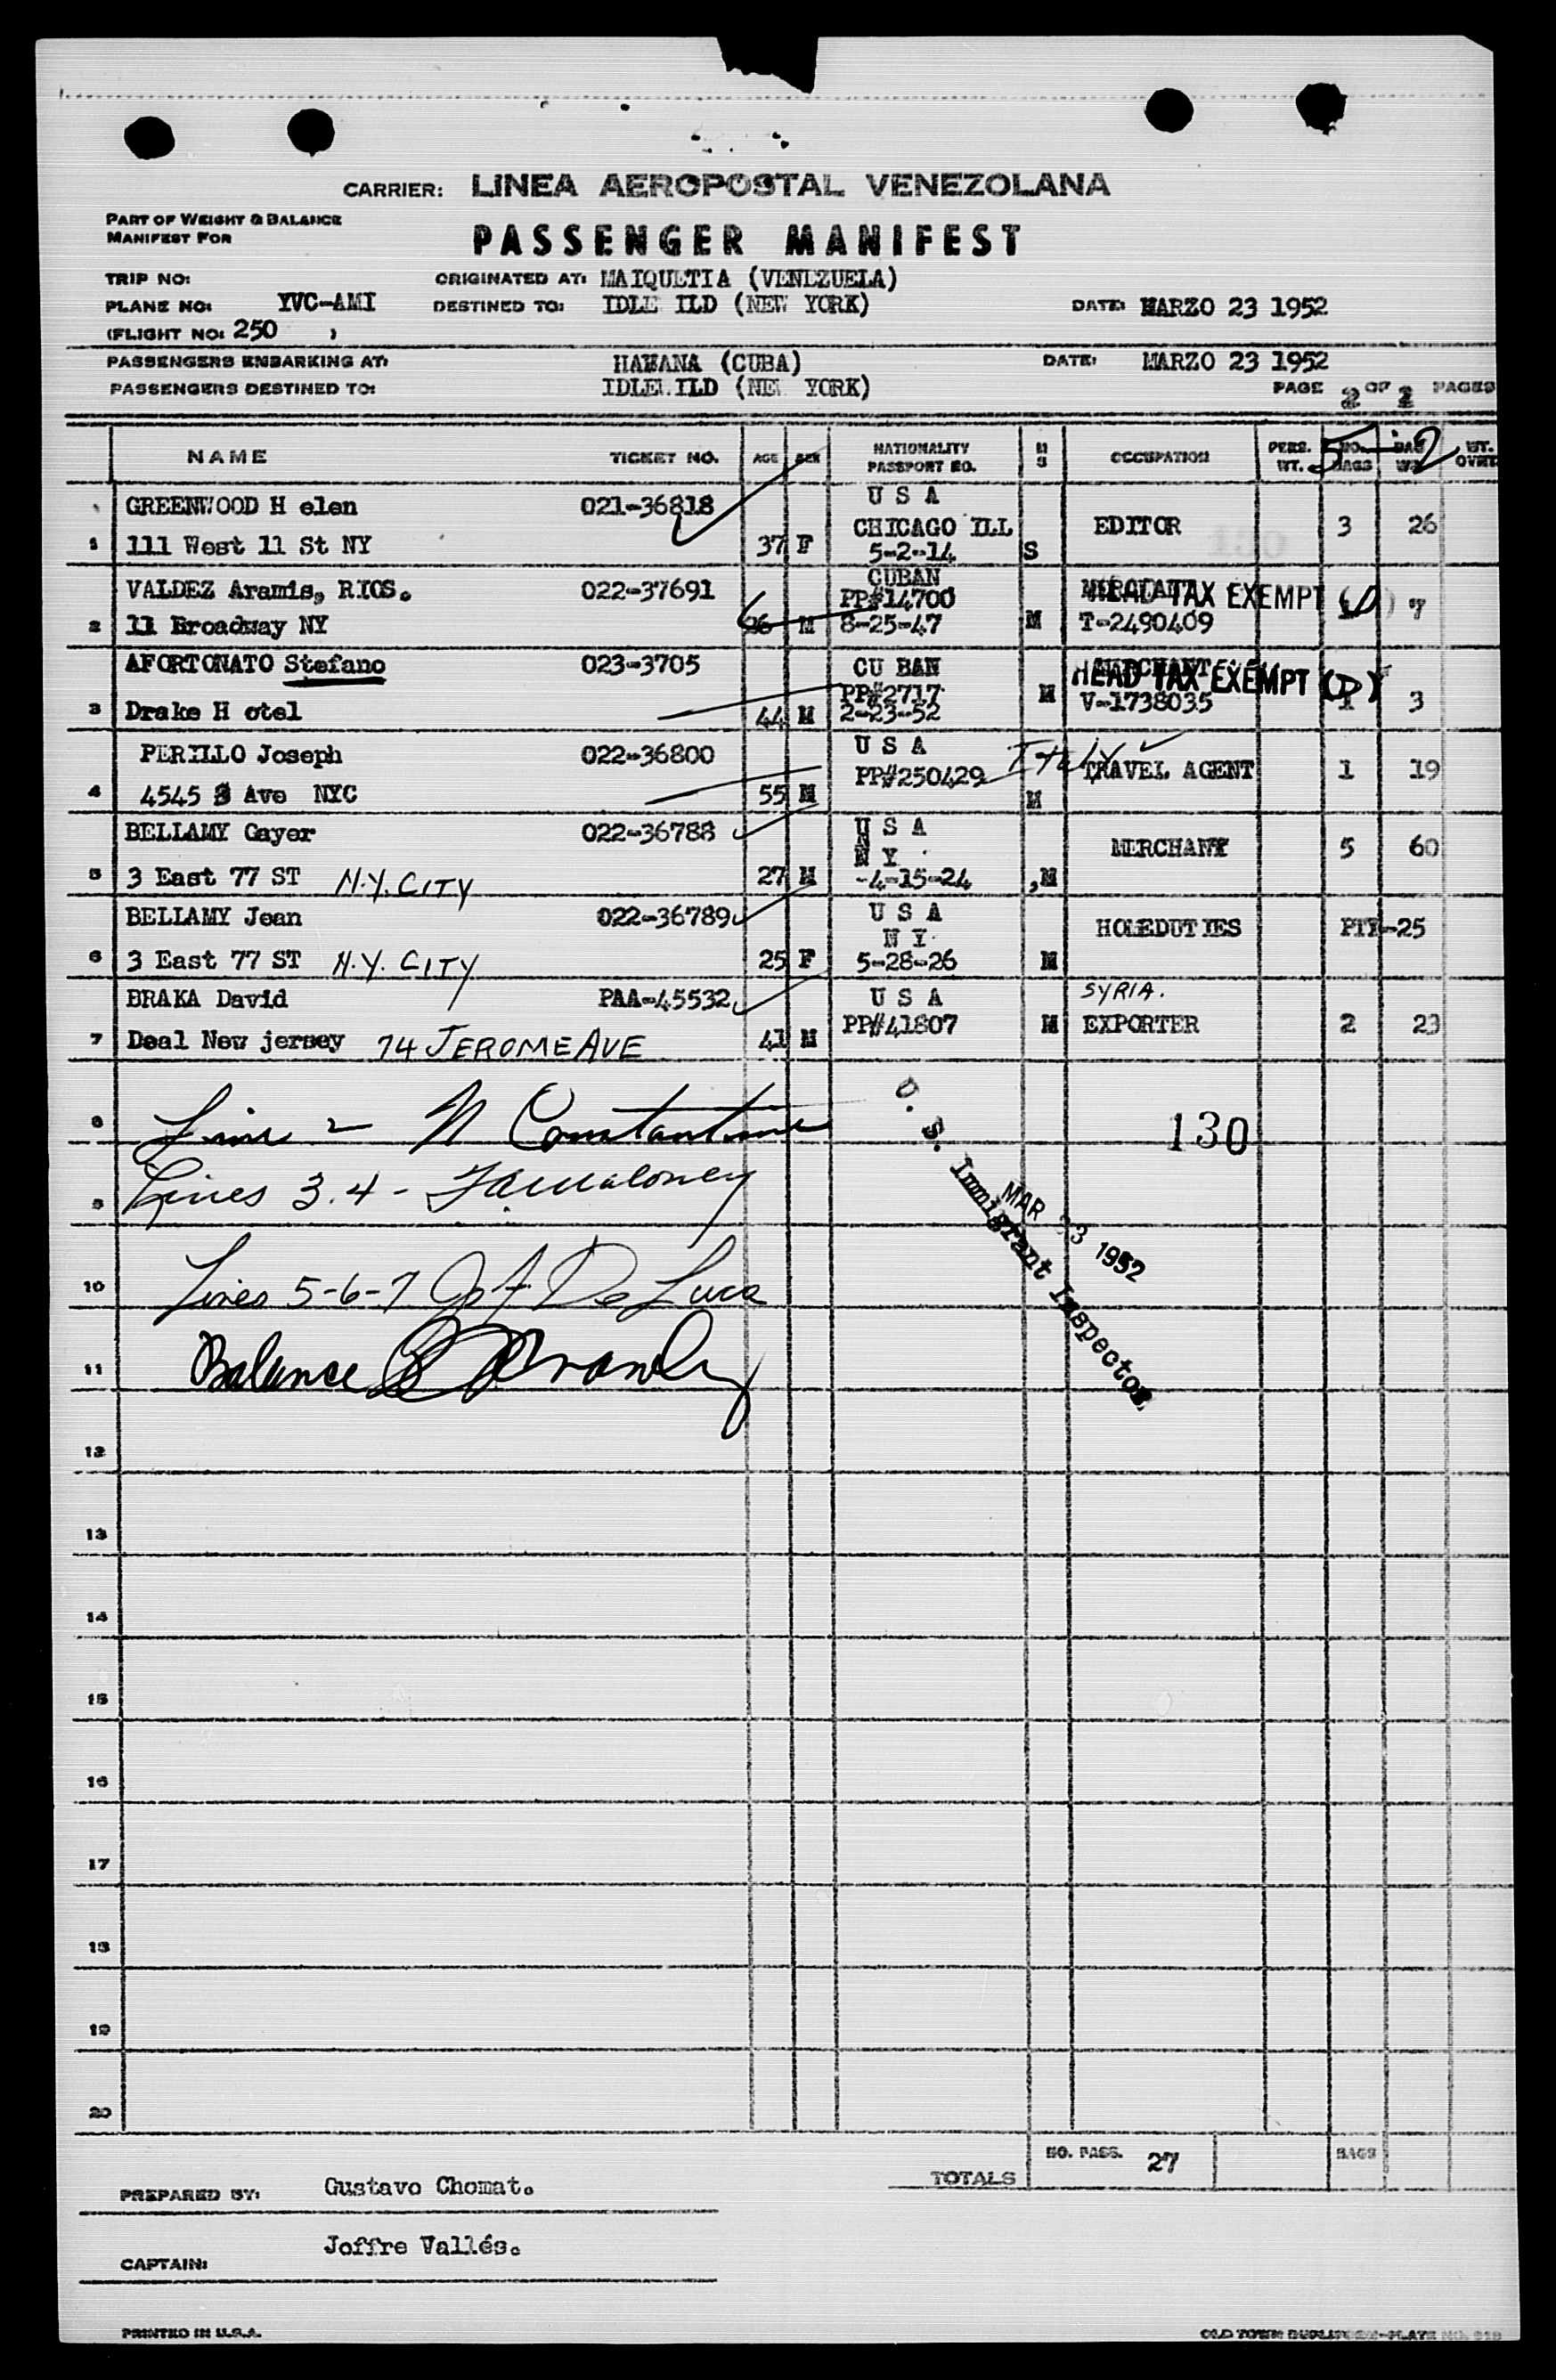 CARRIER: LINEA AEROPOSTAL VENEZOLANA
PART OF WEIGHT & BALANCE
MANIFEST FOR
PASSENGER MANIFEST
TRIP NO: ORIGINATED AT: MAIQUETIA (VENEZUELA)
PLANE NO: YVC-AMI DESTINED TO: IDLE ILD (NEW YORK) DATE: MARZO 23 1952
(FLIGHT NO: 250 )
PASSENGERS EMBARKING AT: HABANA (CUBA) DATE: MARZO 23 1952
PASSENGERS DESTINED TO: IDLEWILD (NEW YORK)
PAGE 2 OF 2 PAGES
NAME TICKET NO. AGE SEX NATIONALITY PASSPORT NO. M S OCCUPATION PERS. WT. NO. BAGS BAG WT. WT. OVER
5-2
GREENWOOD H elen 021-36818 U S A
CHICAGO ILL EDITOR 3 26
1 111 West 11 St NY 37 F 5-2-14 S
VALDEZ Aramis, RIOS. 022-37691 CUBAN
PP#14700 HEAD TAX EXEMPT (D) 7
2 11 Broadway NY 26 M 8-25-47 M T-2490409
AFORTONATO Stefano 023-3705 CU BAN MERCHANT
HEAD TAX EXEMPT (D)
PP#2717 M V-1738035 1 3
3 Drake H otel 44 M 2-23-52
PERILLO Joseph 022-36800 U S A Italy
PP#250429 TRAVEL AGENT 1 19
4 4545 3 Ave NYC 55 M M
BELLAMY Gayer 022-36788 U S A
N Y MERCHANT 5 60
5 3 East 77 ST N.Y. CITY 27 M -4-15-24 ,M
BELLAMY Jean 022-36789 U S A
N Y HOMEDUTIES -25
6 3 East 77 ST N.Y. CITY 25 F 5-28-26 M
BRAKA David PAA-45532 U S A SYRIA.
PP#41807 M EXPORTER 2 23
7 Deal New jersey 74 JEROME AVE 41 M
8 Line 2 - N Constantine 130
9 Lines 3.4 - Maloney
U. S. Immigrant Inspector
MAR 23 1952
10 Lines 5-6-7 De Luca
11 Balance
12
13
14
15
16
17
18
19
20
TOTALS NO. PASS. 27 BAGS
PREPARED BY: Gustavo Chomat.
CAPTAIN: Joffre Vallés.
PRINTED IN U.S.A.